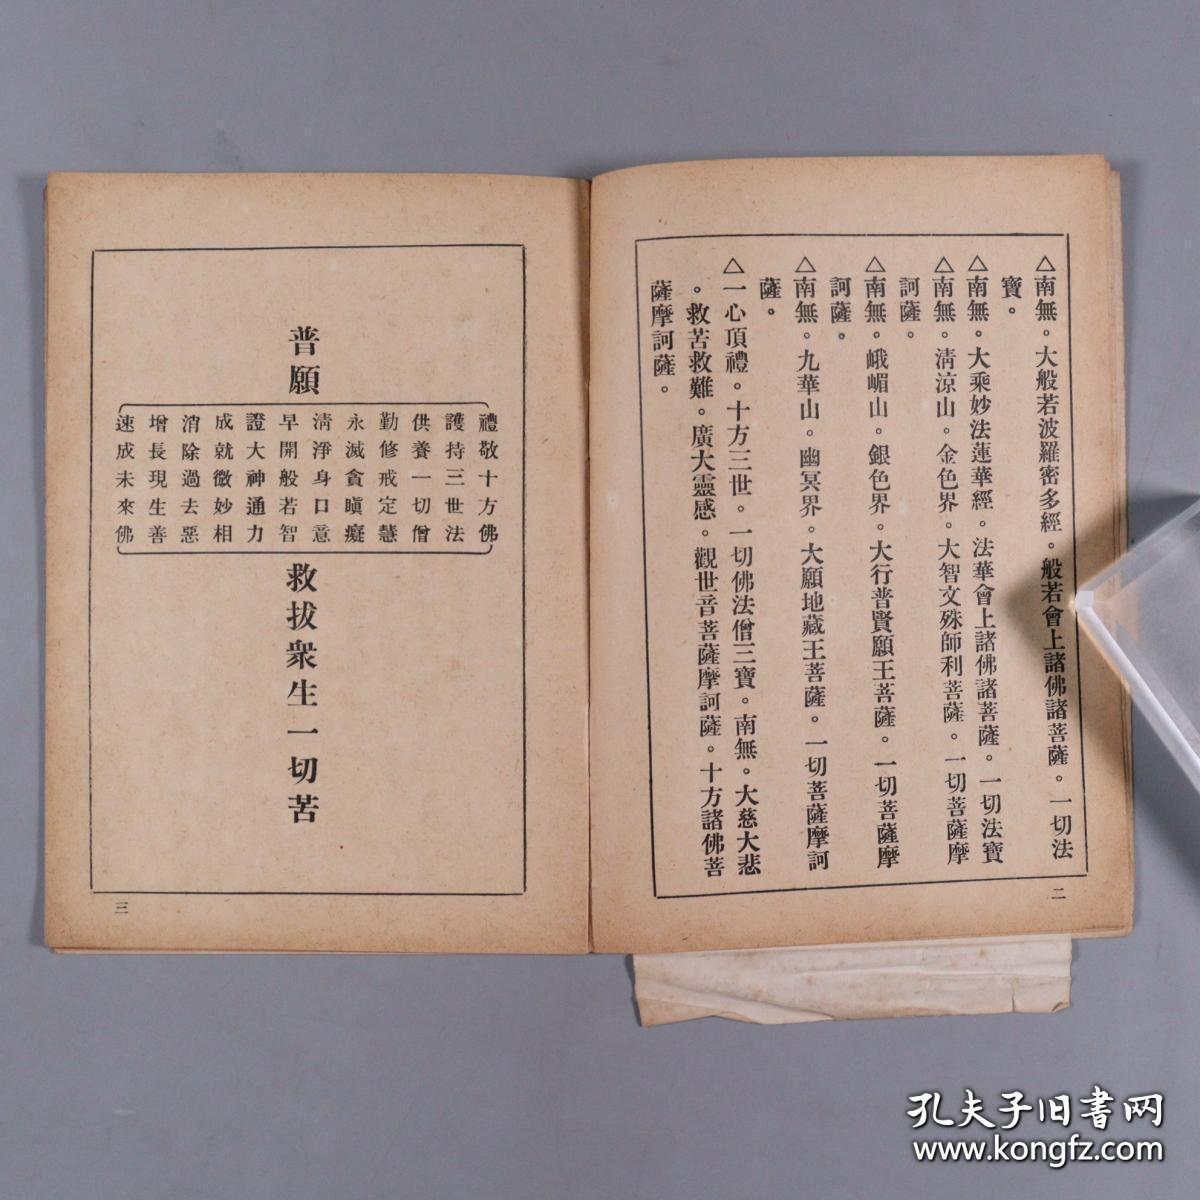 △南無。大般若波羅密多經。般若會上諸佛諸菩薩。一切法
寶。
△南無。大乘妙法蓮華經。法華會上諸佛諸菩薩。一切法寶
△南無。清涼山。金色界。大智文殊師利菩薩。一切菩薩摩
訶薩。
△南無。峨嵋山。銀色界。大行普賢願王菩薩。一切菩薩摩
訶薩。
△南無。九華山。幽冥界。大願地藏王菩薩。一切菩薩摩訶
薩。
△一心頂禮。十方三世。一切佛法僧三寶。南無。大慈大悲
。救苦救難。廣大靈感。觀世音菩薩摩訶薩。十方諸佛菩
薩摩訶薩。
二
普願
禮敬十方佛
護持三世法
供養一切僧
勤修戒定慧
永滅貪瞋癡
清淨身口意
早開般若智
證大神通力
成就微妙相
消除過去惡
增長現生善
速成未來佛
救拔衆生一切苦
三
孔夫子旧书网
www.kongfz.com